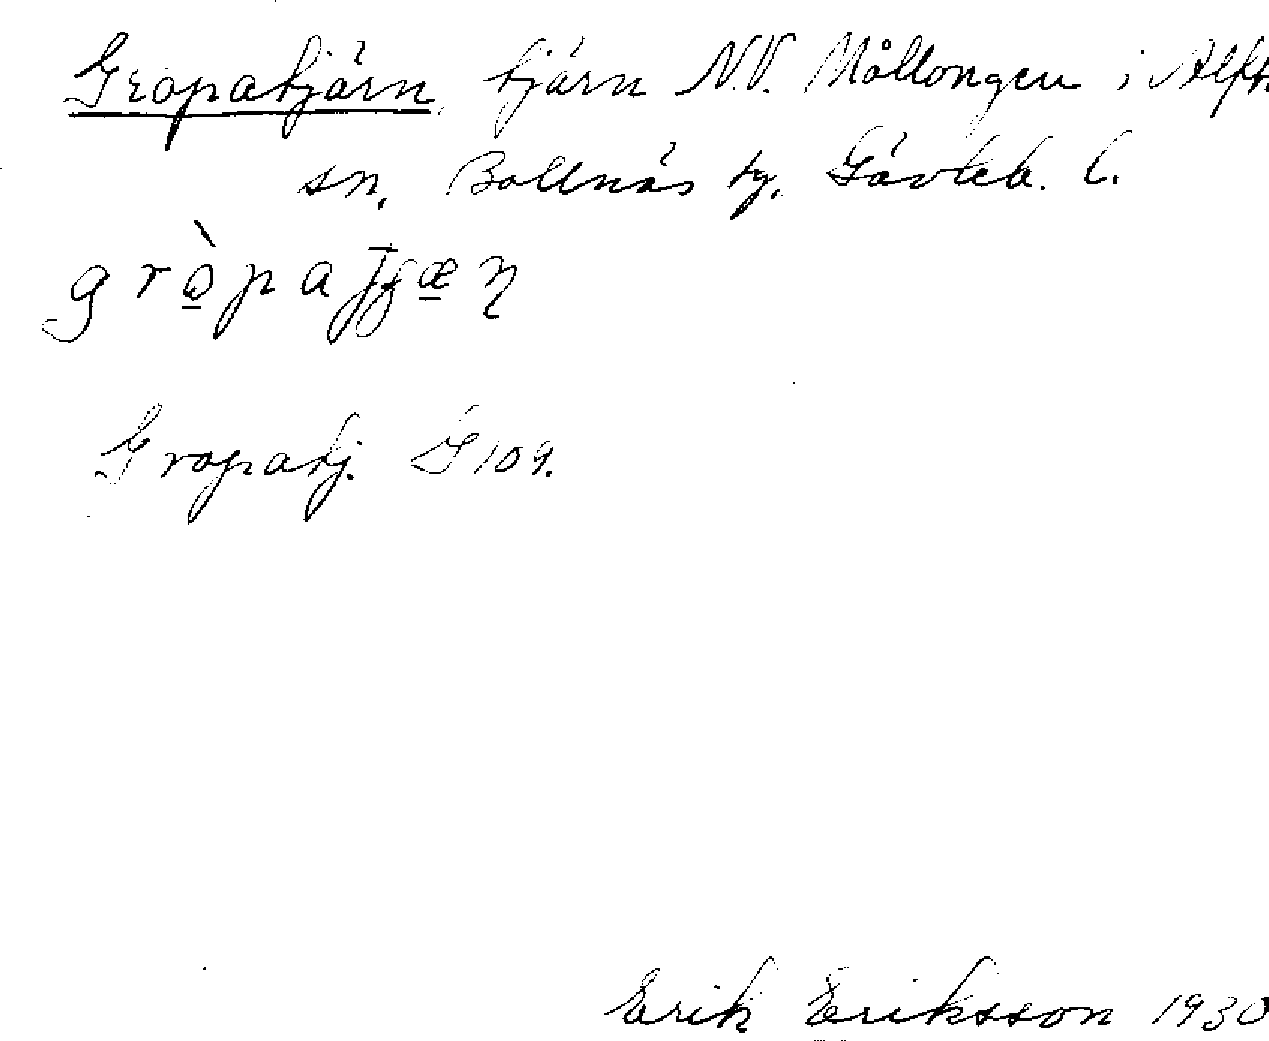 Gropatjärn, tjärn N.V. Mållongen i Alfta
sn. Bollnäs tg. Gävleb. l.
Gropatj. G 109.
Erik Eriksson 1930